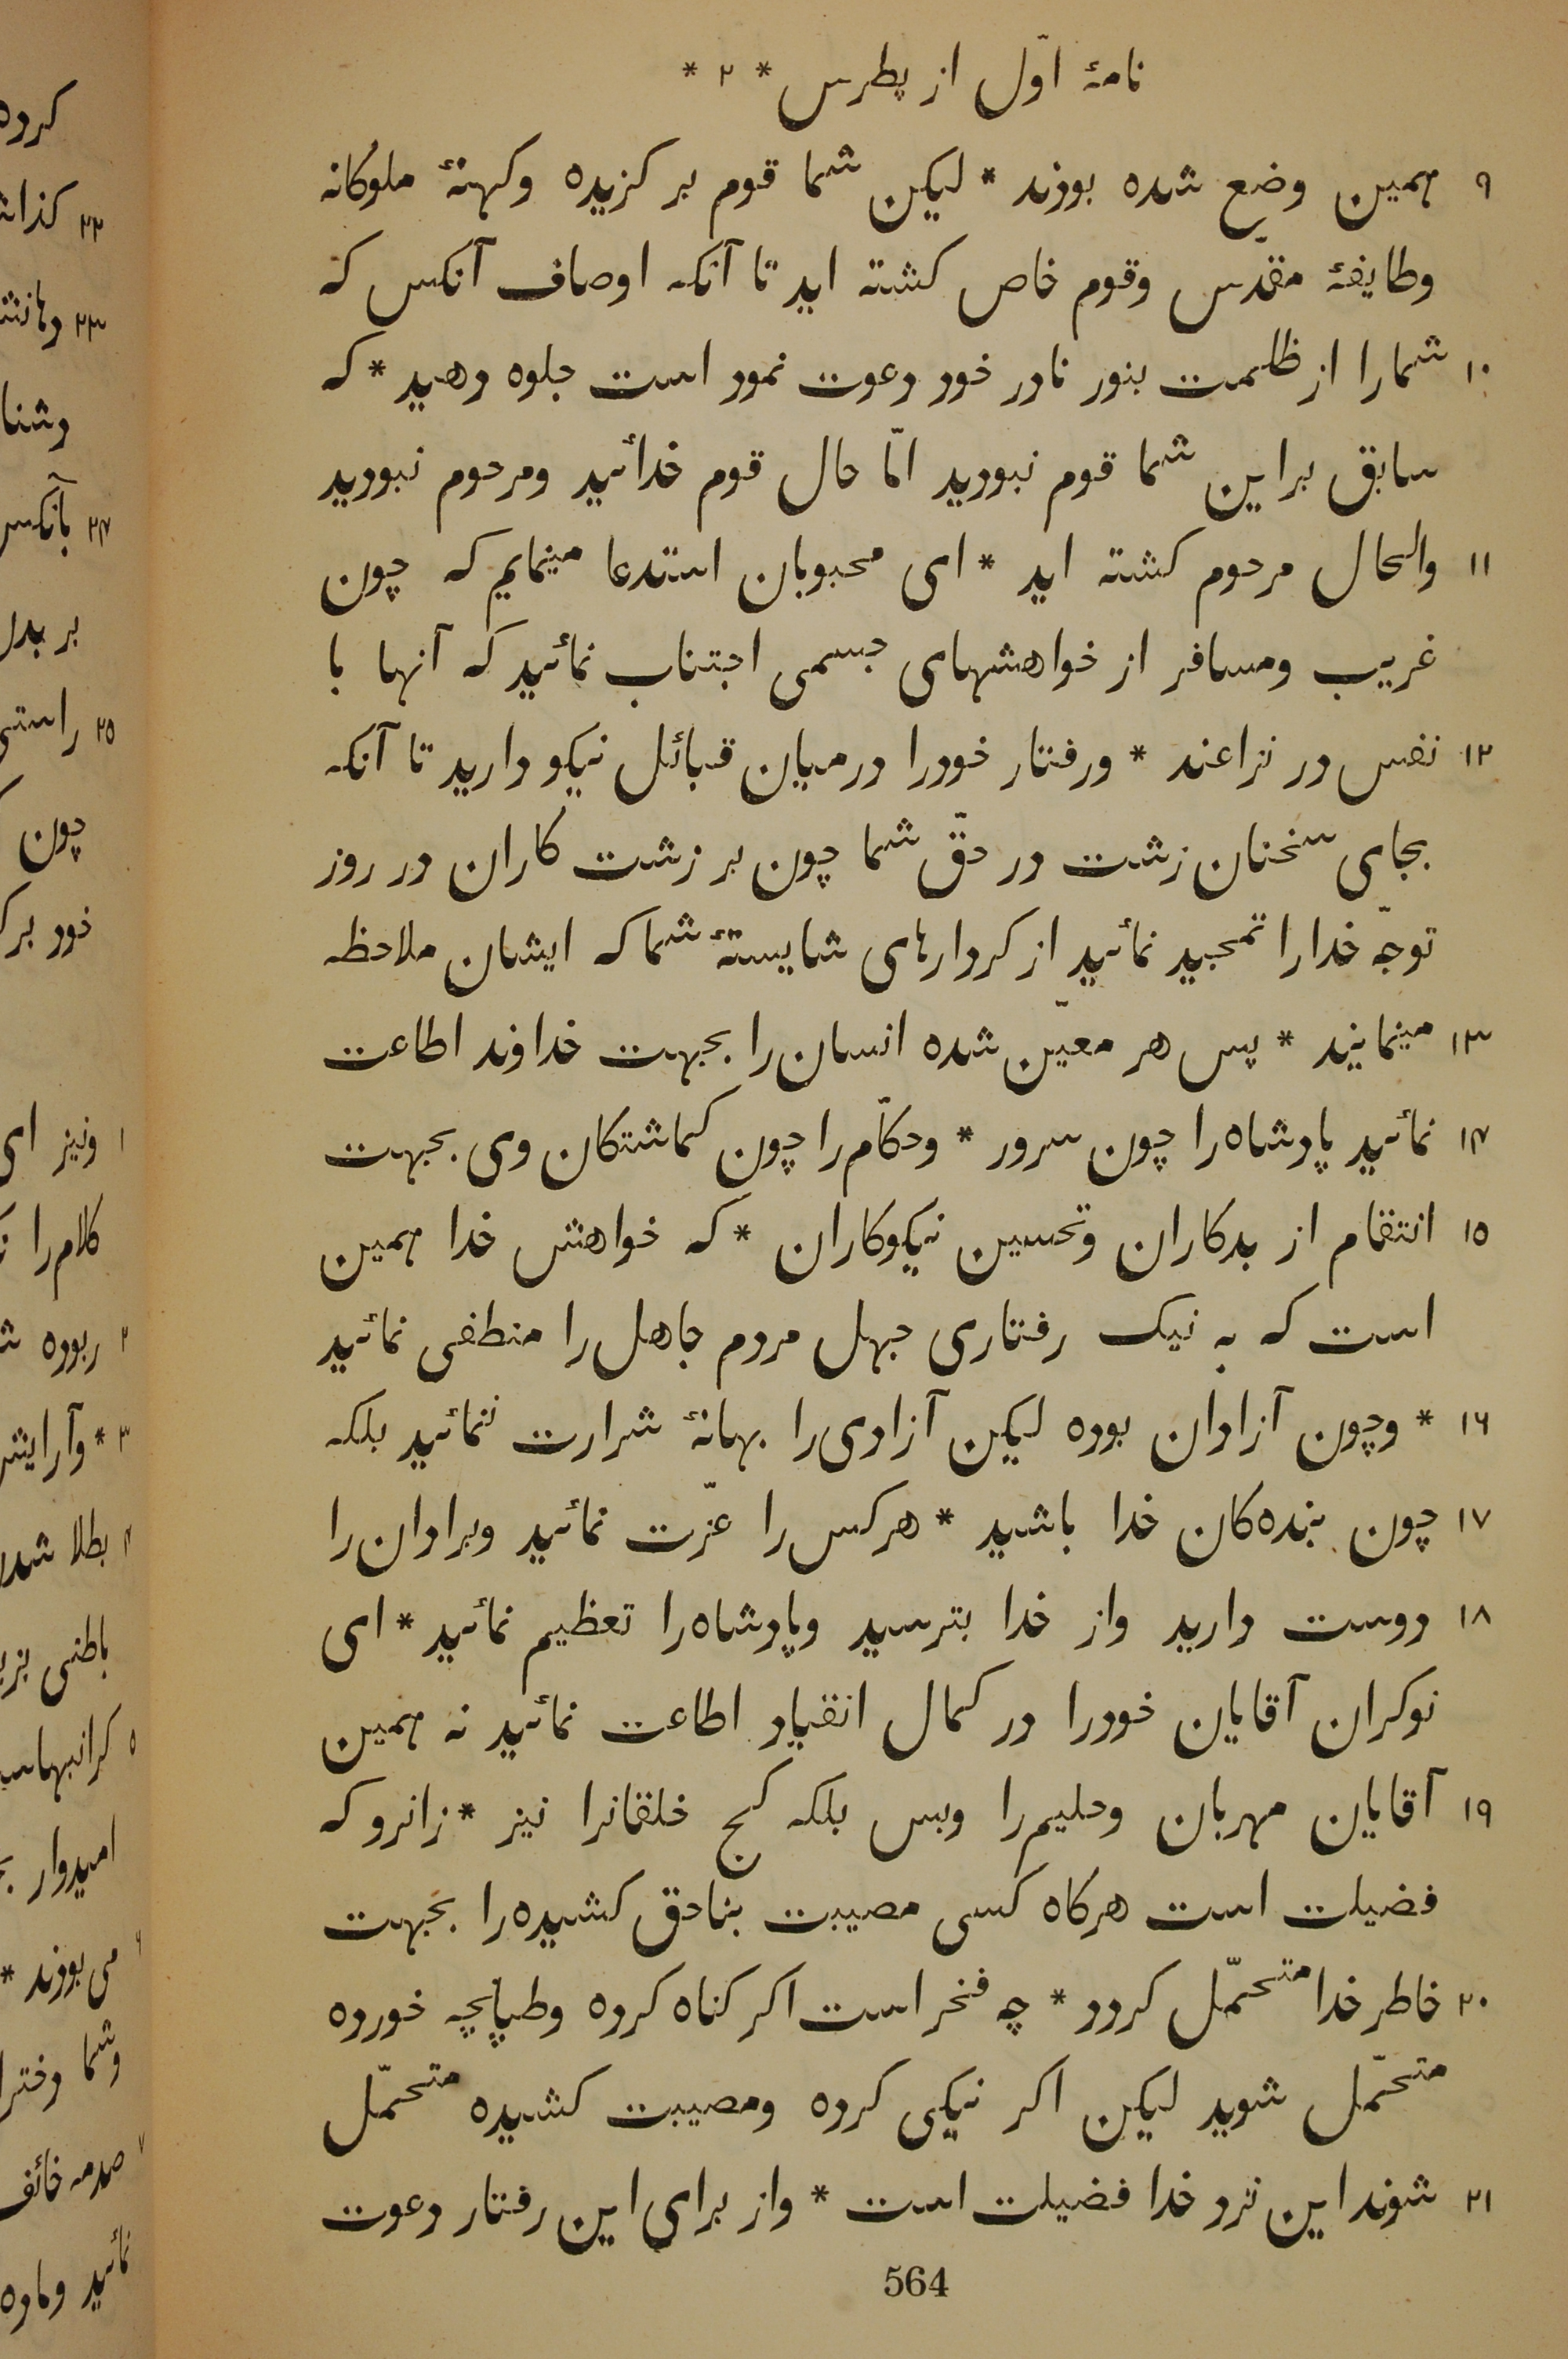 نامهٔ اوّل از پطرس * ٢ *
٩ همین وضع شده بودند * لیکن شما قوم بر کزیده وکهنهٔ ملوکانه
وطایفهٔ مقدّس وقوم خاص کشته اید تا آنکه اوصاف آنکس که
١٠ شمارا از ظلمت بنور نادر خود دعوت نمود است جلوه دهید * که
سابق براین شما قوم نبودید امّا حال قوم خدائید ومرحوم نبودید
١١ والحال مرحوم کشته اید * ای محبوبان استدعا مینمایم که چون
غریب ومسافر از خواهشهای جسمی اجتناب نمائید که آنها با
١٢ نفس در نزاعند * ورفتار خودرا درمیان قبائل نیکو دارید تا آنکه
بجای سخنان زشت در حقّ شما چون بر زشت کاران در روز
توجّه خدارا تمجید نمائید از کردارهای شایستهٔ شما که ایشان ملاحظه
١٣ مینمایند * پس هر معیّن شده انسان را بجهت خداوند اطاعت
١٤ نمائید پادشاه را چون سرور * وحکّام را چون کماشتکان وی بجهت
١٥ انتقام از بدکاران وتحسین نیکوکاران * که خواهش خدا همین
است که به نیک رفتاری جهل مردم جاهل را منطفی نمائید
١٦ * وچون آزادان بوده لیکن آزادی را بهانهٔ شرارت ننمائید بلکه
١٧ چون بنده‌کان خدا باشید * هرکس را عزّت نمائید وبرادان را
١٨ دوست دارید واز خدا بترسید وپادشاه را تعظیم نمائید * ای
نوکران آقایان خودرا در کمال انقیاد اطاعت نمائید نه همین
١٩ آقایان مهربان وحلیم را وبس بلکه کج خلقانرا نیز * زانرو که
فضیلت است هرکاه کسی مصیبت بناحق کشیده را بجهت
٢٠ خاطر خدا متحمّل کردد * چه فخر است اکر کناه کرده وطپاپچه خورده
متحمّل شوید لیکن اکر نیکی کرده ومصیبت کشیده متحمّل
٢١ شوند این نزد خدا فضیلت است * واز برای این رفتار دعوت
564
کرده
٢٢
٢٣
٢٤ بآنکس
بر بدل
٢٥ راستی
چون
خود
١ ونیز ای
کلام را
٢ ربوده
٣ *
٤ بطلا
باطنی
٥
امیدوار
٦ می بودند *
وشما
٧ صدمه خائف
نمائید